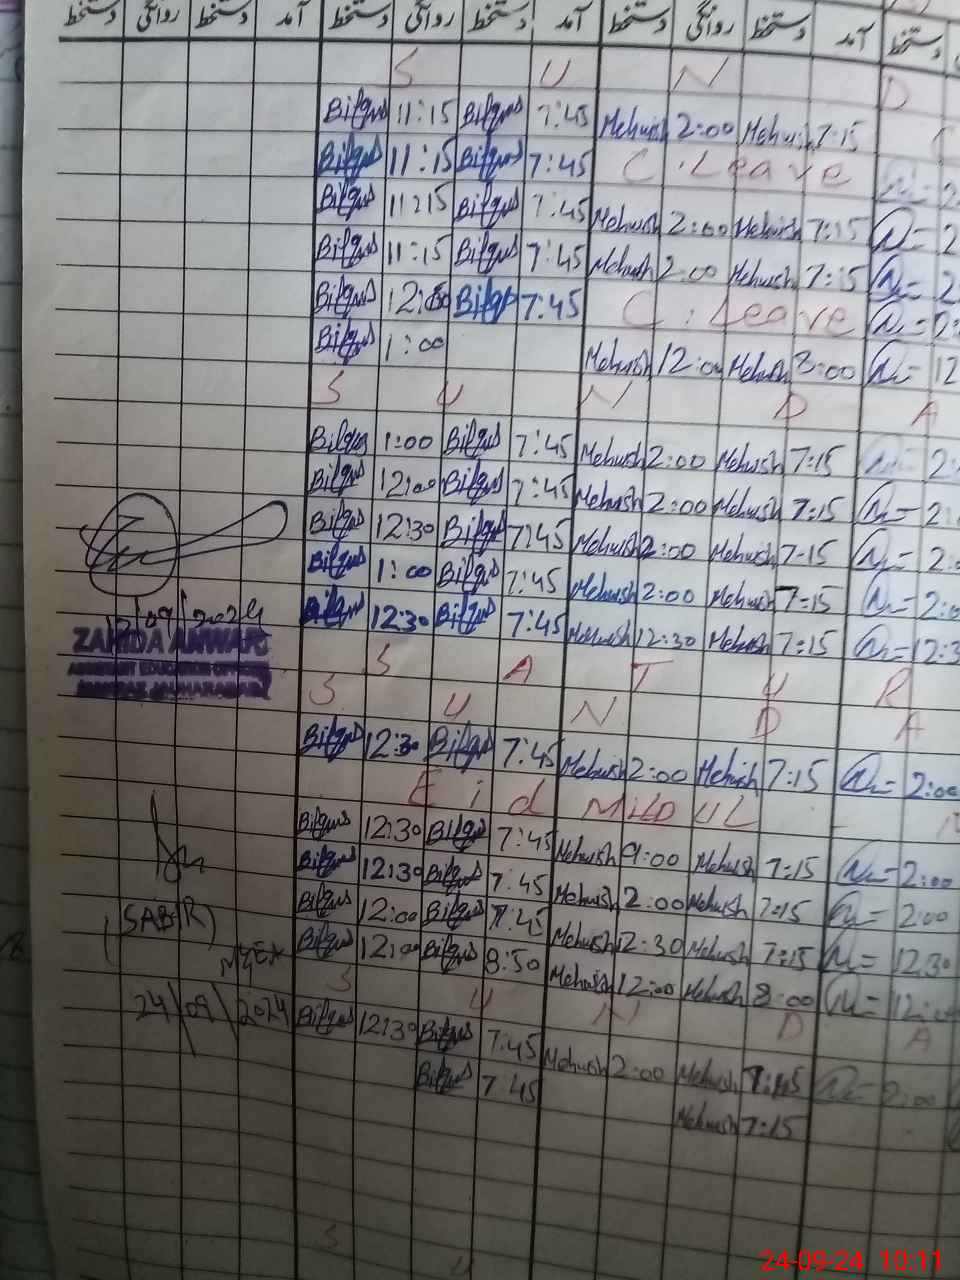 دستخط روانگی دستخط آمد دستخط روانگی دستخط آمد دستخط روانگی دستخط آمد دستخط
S U N D
Bilqus 11:15 Bilqus 7:45 Mehwish 2:00 Mehwish 7:15
Bilqus 11:15 Bilqus 7:45 C. Leave
Bilqus 11:15 Bilqus 7:45 Mehwish 2:00 Mehwish 7:15 = 2
Bilqus 11:15 Bilqus 7:45 Mehwish 2:00 Mehwish 7:15 = 2
Bilqus 12:00 Bilqus 7:45 C. Leave = 2:
Bilqus 1:00 Mehwish 12:00 Mehwish 8:00 = 12
S U N D A
Bilqus 1:00 Bilqus 7:45 Mehwish 2:00 Mehwish 7:15 = 2:
Bilqus 12:00 Bilqus 7:45 Mehwish 2:00 Mehwish 7:15 = 2:
Bilqus 12:30 Bilqus 7:45 Mehwish 2:00 Mehwish 7:15 = 2:0
Bilqus 1:00 Bilqus 7:45 Mehwish 2:00 Mehwish 7:15 = 2:0
Bilqus 12:30 Bilqus 7:45 Mehwish 12:30 Mehwish 7:15 = 12:3
12/09/2024
ZAHIDA ANWAR
ASSISTANT EDUCATION OFFICER
S A T U R
S U N D A
Bilqus 12:30 Bilqus 7:45 Mehwish 2:00 Mehwish 7:15 = 2:00
Eid MILD UL
Bilqus 12:30 Bilqus 7:45 Mehwish 2:00 Mehwish 7:15 = 2:00
Bilqus 12:30 Bilqus 7:45 Mehwish 2:00 Mehwish 7:15 = 2:00
Bilqus 12:00 Bilqus 7:45 Mehwish 12:30 Mehwish 7:15 = 12:30
Bilqus 12:00 Bilqus 8:50 Mehwish 12:00 Mehwish 8:00 = 12:00
(SABIR)
S U N D A
24/09/2024 Bilqus 12:30 Bilqus 7:45 Mehwish 2:00 Mehwish 7:15 = 2:00
Bilqus 7:45 Mehwish 7:15
S U
24-09-24 10:11